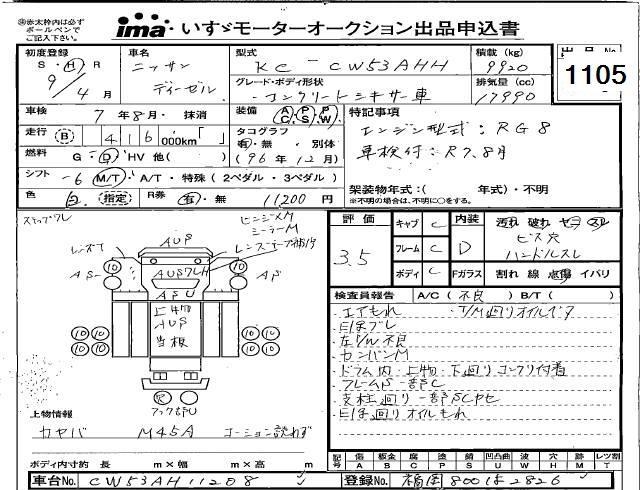 ㊟赤太枠内は必ず
ボールペンで
ご記入下さい。
ima いすゞモーターオークション出品申込書
出品No.
1105
初度登録
S・H・R
9/4月
車名
ニッサン
ディーゼル
型式
KC-CW53AHH
積載 (kg)
9920
グレード・ボディ形状
コンクリートミキサー車
排気量 (cc)
17990
車検 7年8月・抹消
装備 AC PS PW
特記事項
エンジン型式:RG8
車検付:R7.8月
走行 B 416 000km「 」
タコグラフ
有・無・別体
(96年12月)
燃料 G・D・HV 他( )
シフト 6 M/T・A/T・特殊(2ペダル・3ペダル)
架装物年式:( 年式)・不明
※不明の場合は、不明に○をする。
色 白 指定 R券 有・無 11200円
評価
3.5
キャブ C
フレーム C
ボディ C
内装 D
汚れ 破れ ヤニ スレ
ビス穴
ハンドルスレ
Fガラス 割れ 線 点傷 イバリ
ステップワレ
ヒンジMM
ミラーM
AUP
10 10
AP
AUP
当板
10 10 10 10
10 10 10 10
検査員報告 A/C(不良) B/T( )
エアもれ T/M廻りオイルベタ
左P/W不良
カンバンM
ドラム内・上物・下廻りコンクリ付着
フレームS一部C
支柱廻り一部SCヤセ
廻りオイルもれ
上物情報
カヤバ MY5A コーション読めず
ボディ内寸約 長 m×幅 m×高 m
記号 傷 A 板金 B 腐 C 塗 P 錆 S 凹凸曲 U 波 W 穴 H 跡 M レツ割 T
車台No. CW53AH11208
登録No. 福岡800は2826